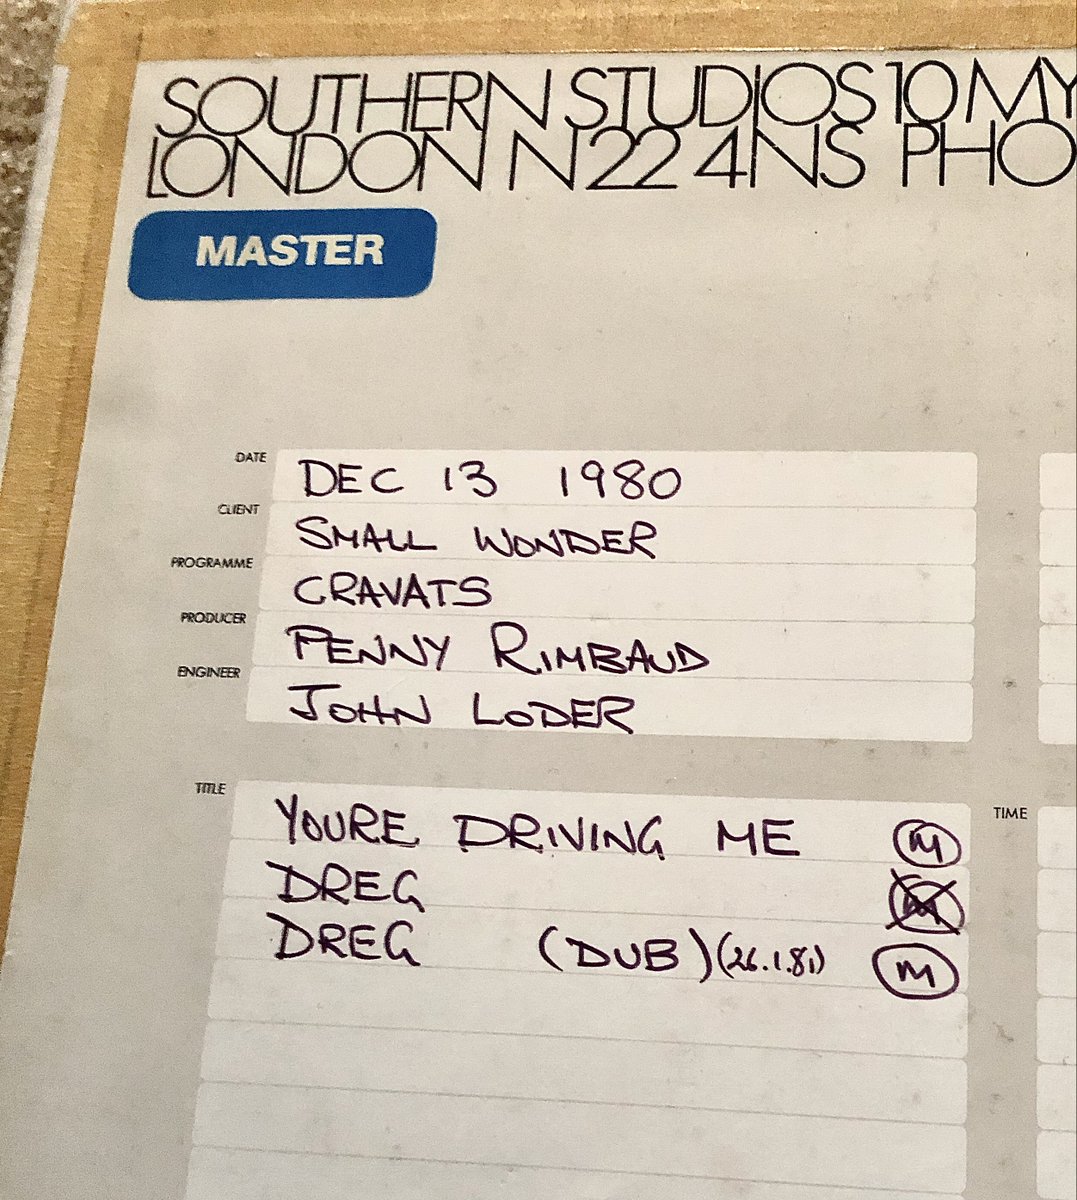 SOUTHERN STUDIOS 10 MY
LONDON N22 4NS PHO
MASTER
DATE DEC 13 1980
CLIENT SMALL WONDER
PROGRAMME CRAVATS
PRODUCER PENNY RIMBAUD
ENGINEER JOHN LODER
TITLE TIME
YOURE DRIVING ME M
DREG M
DREG (DUB) (26.1.81) M